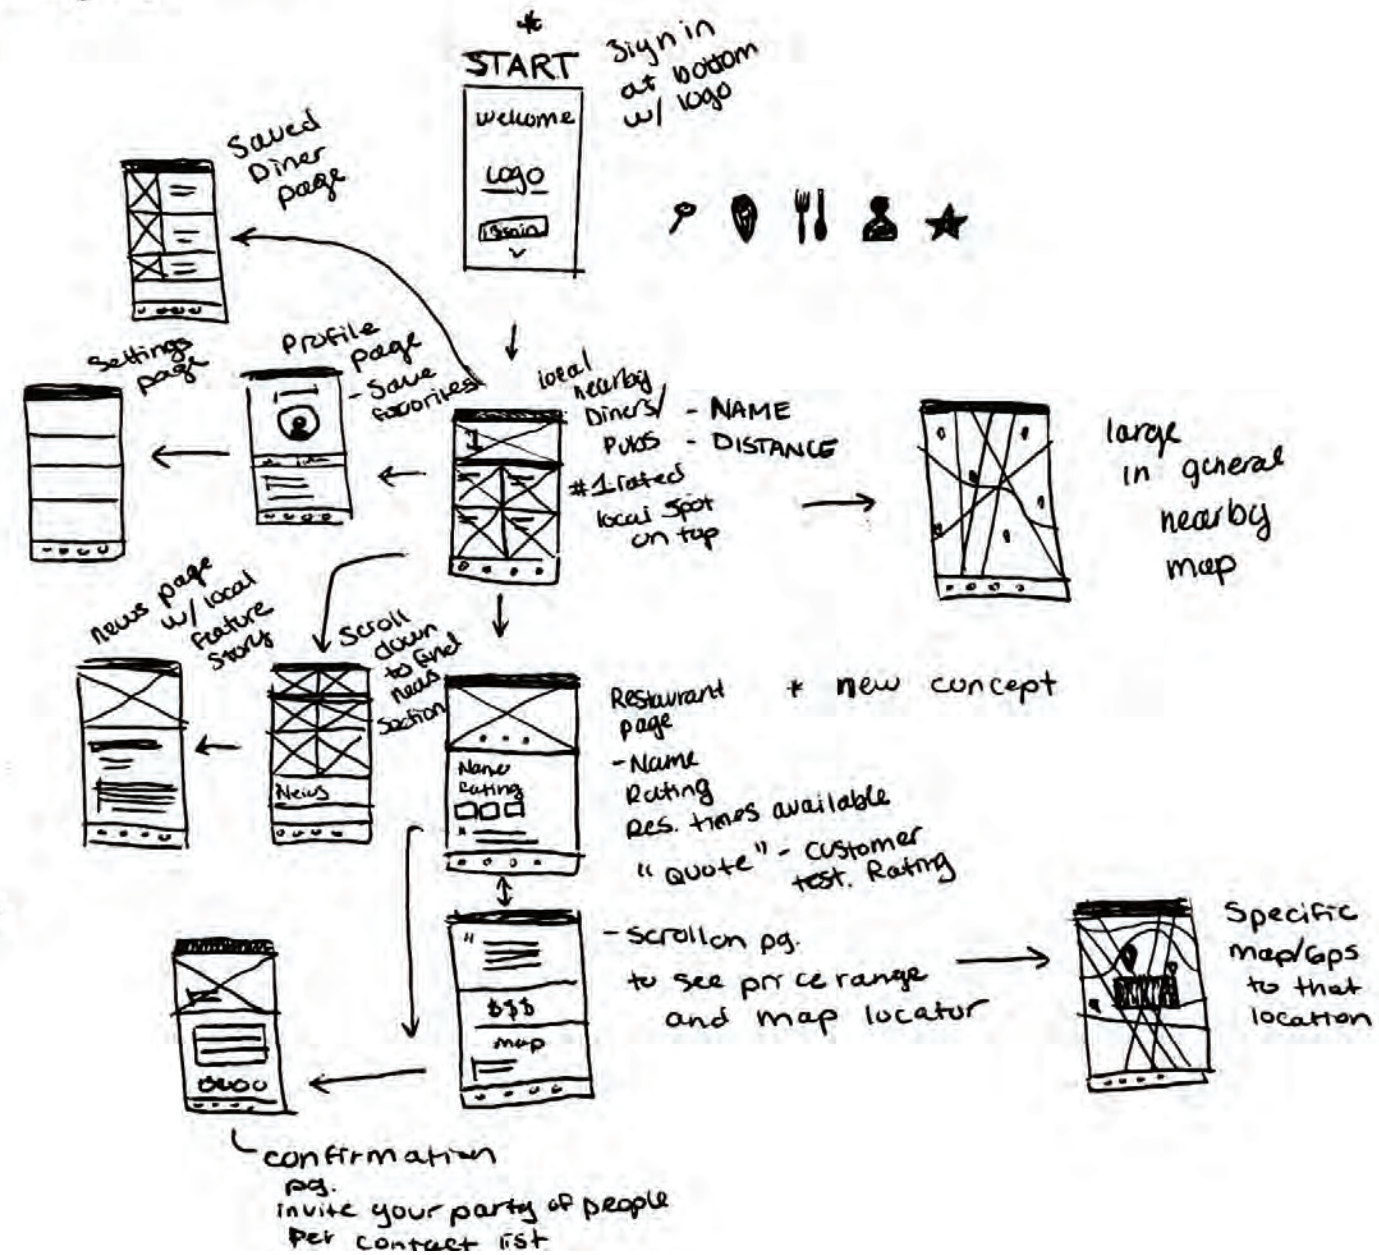 *
START
Sign in
at bottom
w/ logo
welcome
Logo
Saved
Diner
page
Settings
page
Profile
page
- Save
favorites
local
nearby
Diners/
Pubs
- NAME
- DISTANCE
1
#1 rated
local spot
on top
large
in general
nearby
map
news page
w/ local
feature
story
scroll
down
to find
news
section
News
Name
Rating
Restaurant
page
* new concept
- Name
Rating
Res. times available
"QUOTE" - customer
test. Rating
"
$$$
map
- scroll on pg.
to see price range
and map locator
Specific
map/Gps
to that
location
confirmation
pg.
invite your party of people
per contact list